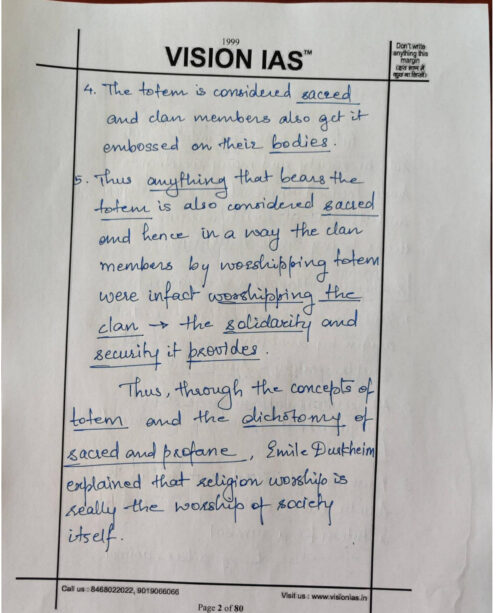 1999
VISION IAS™
Don't write
anything this
margin
(इस भाग में
कुछ ना लिखें)
4. The totem is considered sacred
and clan members also get it
embossed on their bodies.
5. Thus anything that bears the
totem is also considered sacred
and hence in a way the clan
members by worshipping totem
were infact worshipping the
clan → the solidarity and
security it provides.
Thus, through the concepts of
totem and the dichotomy of
sacred and profane, Emile Durkheim
explained that religion worship is
really the worship of society
itself.
Call us : 8468022022, 9019066066
Visit us : www.visionias.in
Page 2 of 80